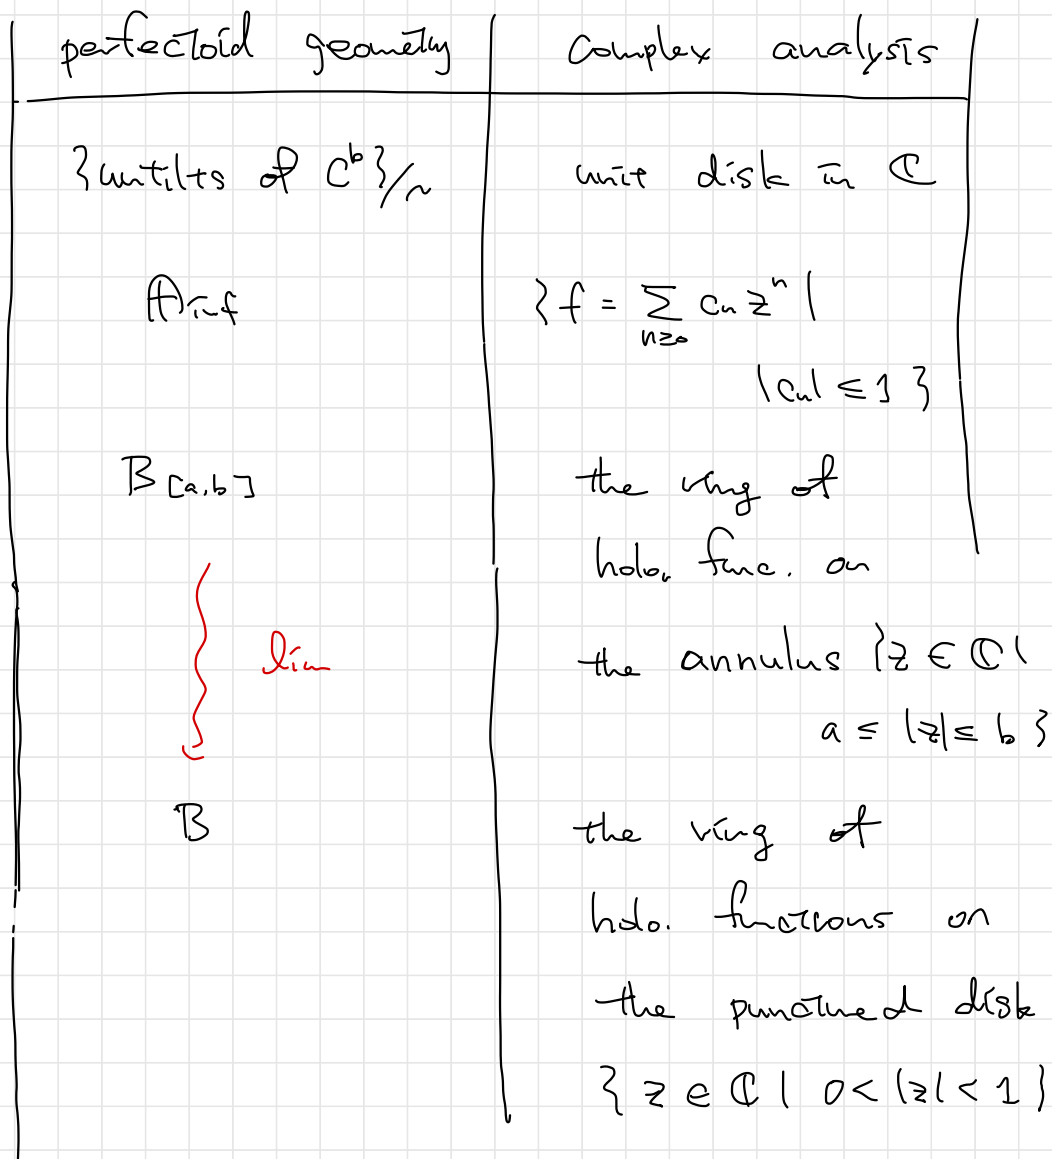 perfectoid geometry complex analysis
{untilts of C^b}/~ unit disk in ℂ
A_inf { f = Σ_{n≥0} c_n z^n |
|c_n| ≤ 1 }
B_[a,b] the ring of
holo. func. on
lim the annulus {z ∈ ℂ |
a ≤ |z| ≤ b }
B the ring of
holo. functions on
the punctured disk
{ z ∈ ℂ | 0 < |z| < 1 }